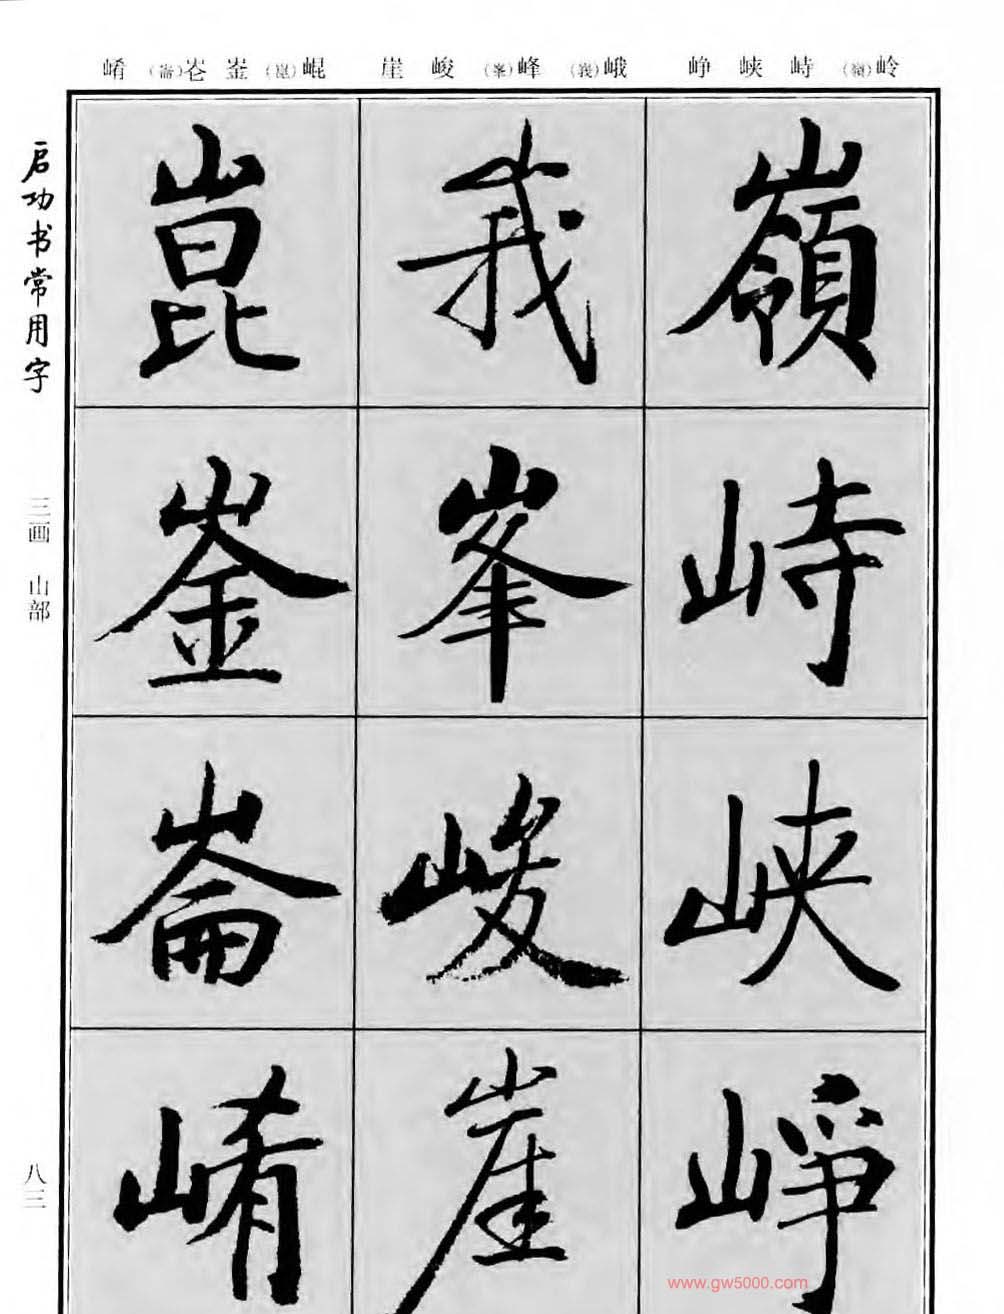 岭（嶺）峙 峡 峥 峨（峩）峰（峯）峻 崖 崐（崑）崟 （崙）崤
嶺
峙
峡
崢
峩
峯
峻
崖
崑
崟
崙
崤
启功书常用字
三画 山部
八三
www.gw5000.com